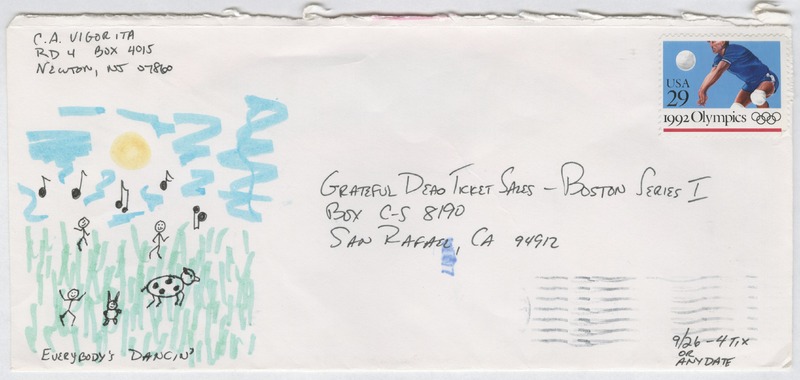 C.A. VIGORITA
RD 4 BOX 4015
NEWTON, NJ 07860
USA
29
1992 Olympics
GRATEFUL DEAD TICKET SALES - BOSTON SERIES I
BOX C-S 8190
SAN RAFAEL, CA 94912
9/26 - 4 TIX
OR
ANY DATE
EVERYBODY'S DANCIN'